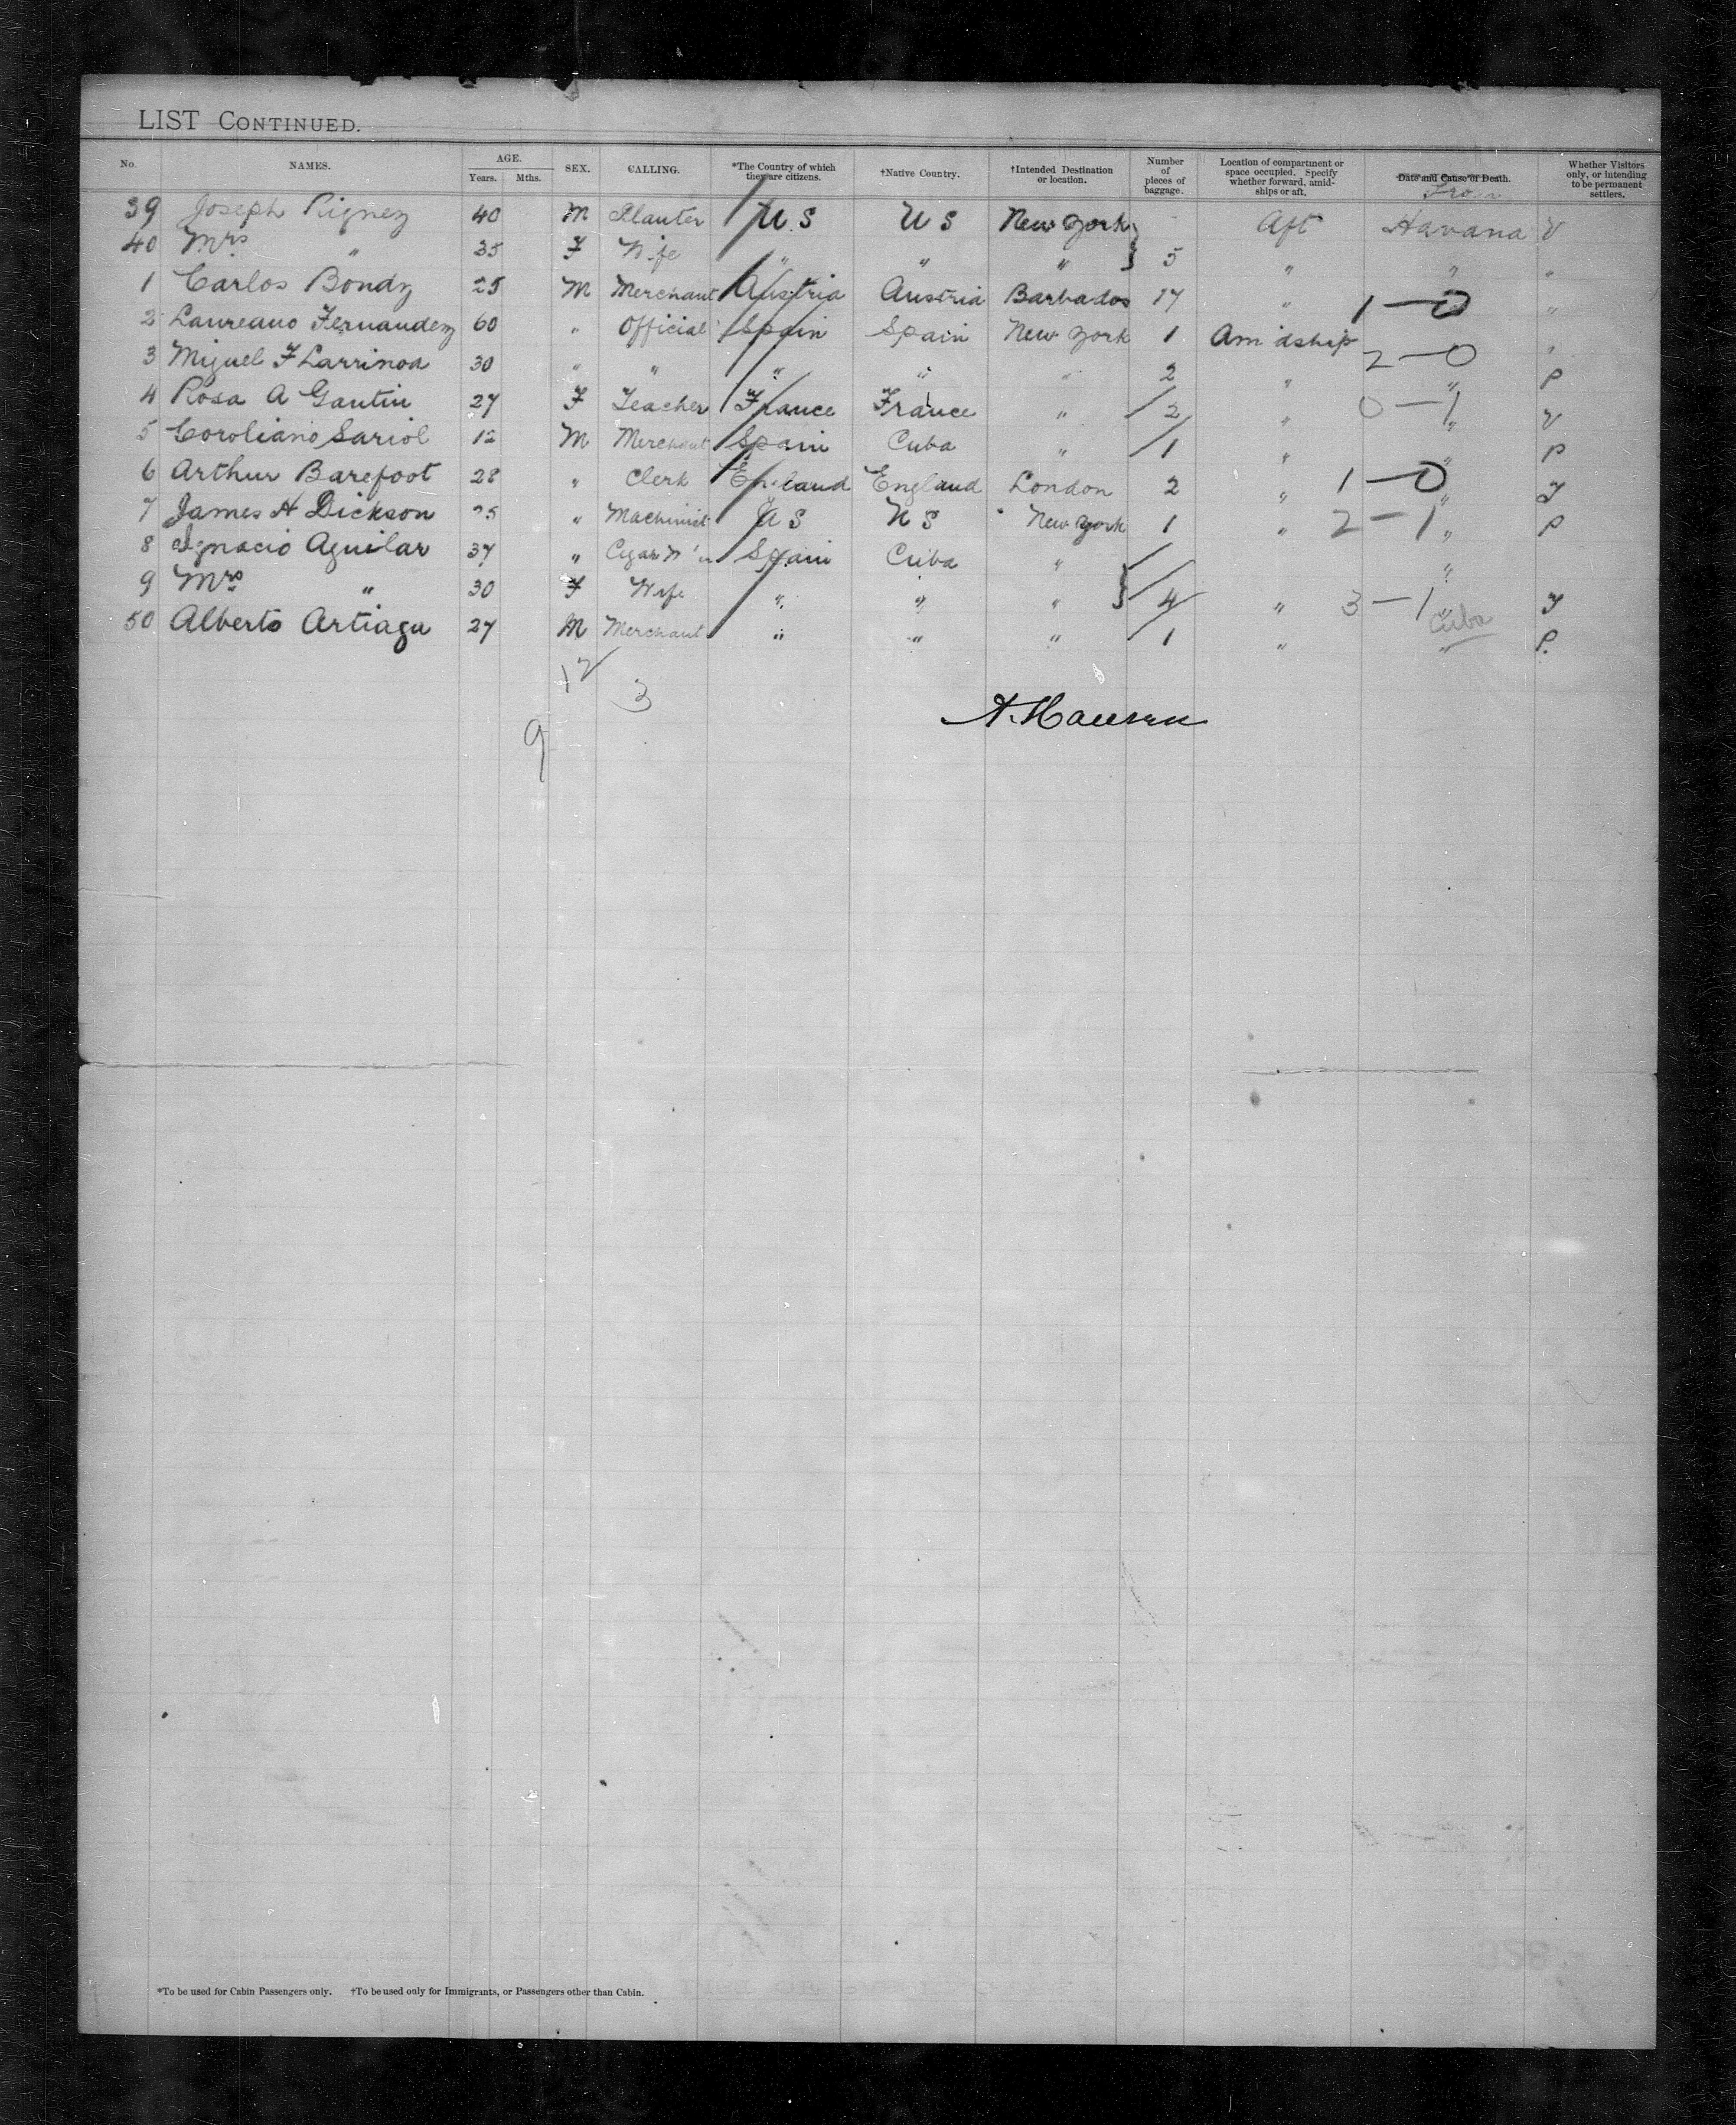 LIST CONTINUED.
No. NAMES. AGE. Years. Mths. SEX. CALLING. *The Country of which they are citizens. †Native Country. †Intended Destination or location. Number of pieces of baggage. Location of compartment or space occupied. Specify whether forward, amidships or aft. Date and Cause of Death. From Whether Visitors only, or intending to be permanent settlers.
39 Joseph 40 M Planter U.S U S New York Aft Havana V
40 Mrs " 35 F Wife " " " 5 " " "
1 Carlos Bondy 25 M Merchant Austria Austria Barbados 17 " 1—0 "
2 Laureano Fernandez 60 " Official Spain Spain New York 1 Amidship 2—0 "
3 Miguel F Larrinoa 30 " " " " " 2 " " P
4 Rosa A Gautiu 27 F Teacher France France " 2 " 0—1 " V
5 Coroliano Sariol 12 M Merchant Spain Cuba " 1 " " P
6 Arthur Barefoot 28 " Clerk England England London 2 " 1—0 " T
7 James H Dickson 25 " Machinist U S U S New York 1 " 2—1 " P
8 Ignacio Aguilar 37 " Cigar Spain Cuba " "
9 Mrs " 30 F Wife " " " 4 " 3—1 " T
Cuba
50 Alberto Artiaga 27 M Merchant " " " 1 " " P.
12 3
A. Hansen
9
*To be used for Cabin Passengers only. †To be used only for Immigrants, or Passengers other than Cabin.